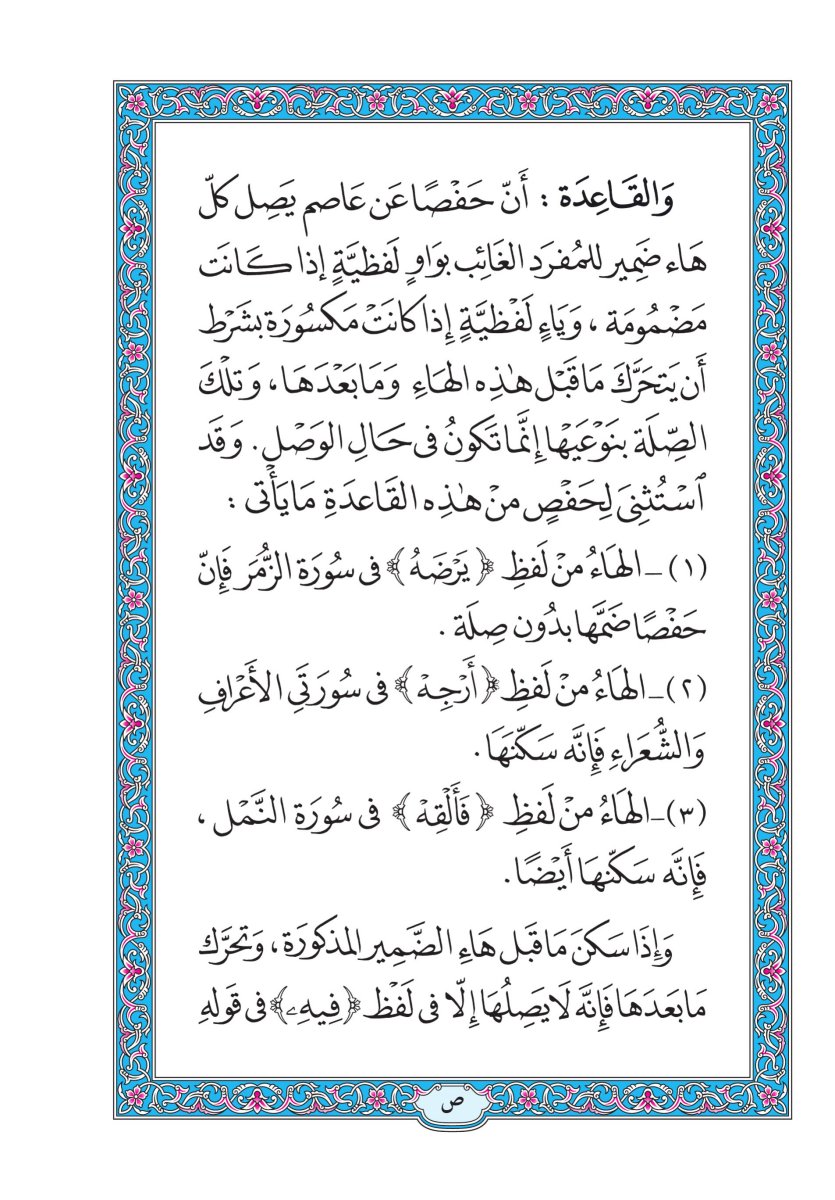 وَالقَاعِدَة : أَنّ حَفْصًا عَن عَاصم يَصِل كلّ
هَاء ضَمِير للمُفرَد الغَائِب بوَاوٍ لَفظِيَّةٍ إذا كَانَت
مَضْمُومَة ، وَيَاءٍ لَفْظِيَّةٍ إِذا كانَتْ مَكسُورَة بشَرْط
أَن يَتحَرَّكَ مَا قَبْل هٰذِه الهَاءِ وَمَا بَعْدَهَا ، وَتلْكَ
الصِّلَة بنَوْعَيْهَا إِنَّمَا تَكونُ فى حَالِ الوَصْلِ . وَقَد
ٱسْتُثنِىَ لِحَفْصٍ منْ هٰذِه القَاعدَةِ مَا يَأْتى :
(١) ــ الهَاءُ منْ لَفظِ ﴿ يَرْضَهُ ﴾ فى سُورَة الزُّمَر فَإِنّ
حَفْصًا ضَمَّها بدُون صِلَة .
(٢) ــ الهَاءُ منْ لَفظِ ﴿ أَرْجِهْ ﴾ فى سُورَتَىِ الأَعْرَافِ
وَالشُّعَرَاءِ فَإِنَّه سَكّنَهَا .
(٣) ــ الهَاءُ منْ لَفظِ ﴿ فَأَلْقِهْ ﴾ فى سُورَة النَّمْل ،
فَإِنَّه سَكّنهَا أَيْضًا .
وَإِذَا سَكنَ مَا قَبل هَاءِ الضَّمِير المذكورَة ، وَتحَرَّك
مَا بَعدَهَا فَإِنَّه لَا يَصِلُهَا إِلّا فى لَفْظ ﴿ فِيهِۦ ﴾ فى قَولهِ
ص